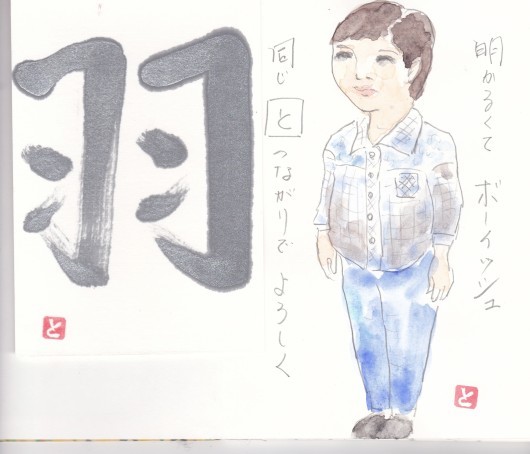 明かるくて ボーイッシュ
同じ と つながりで よろしく
と
羽
と